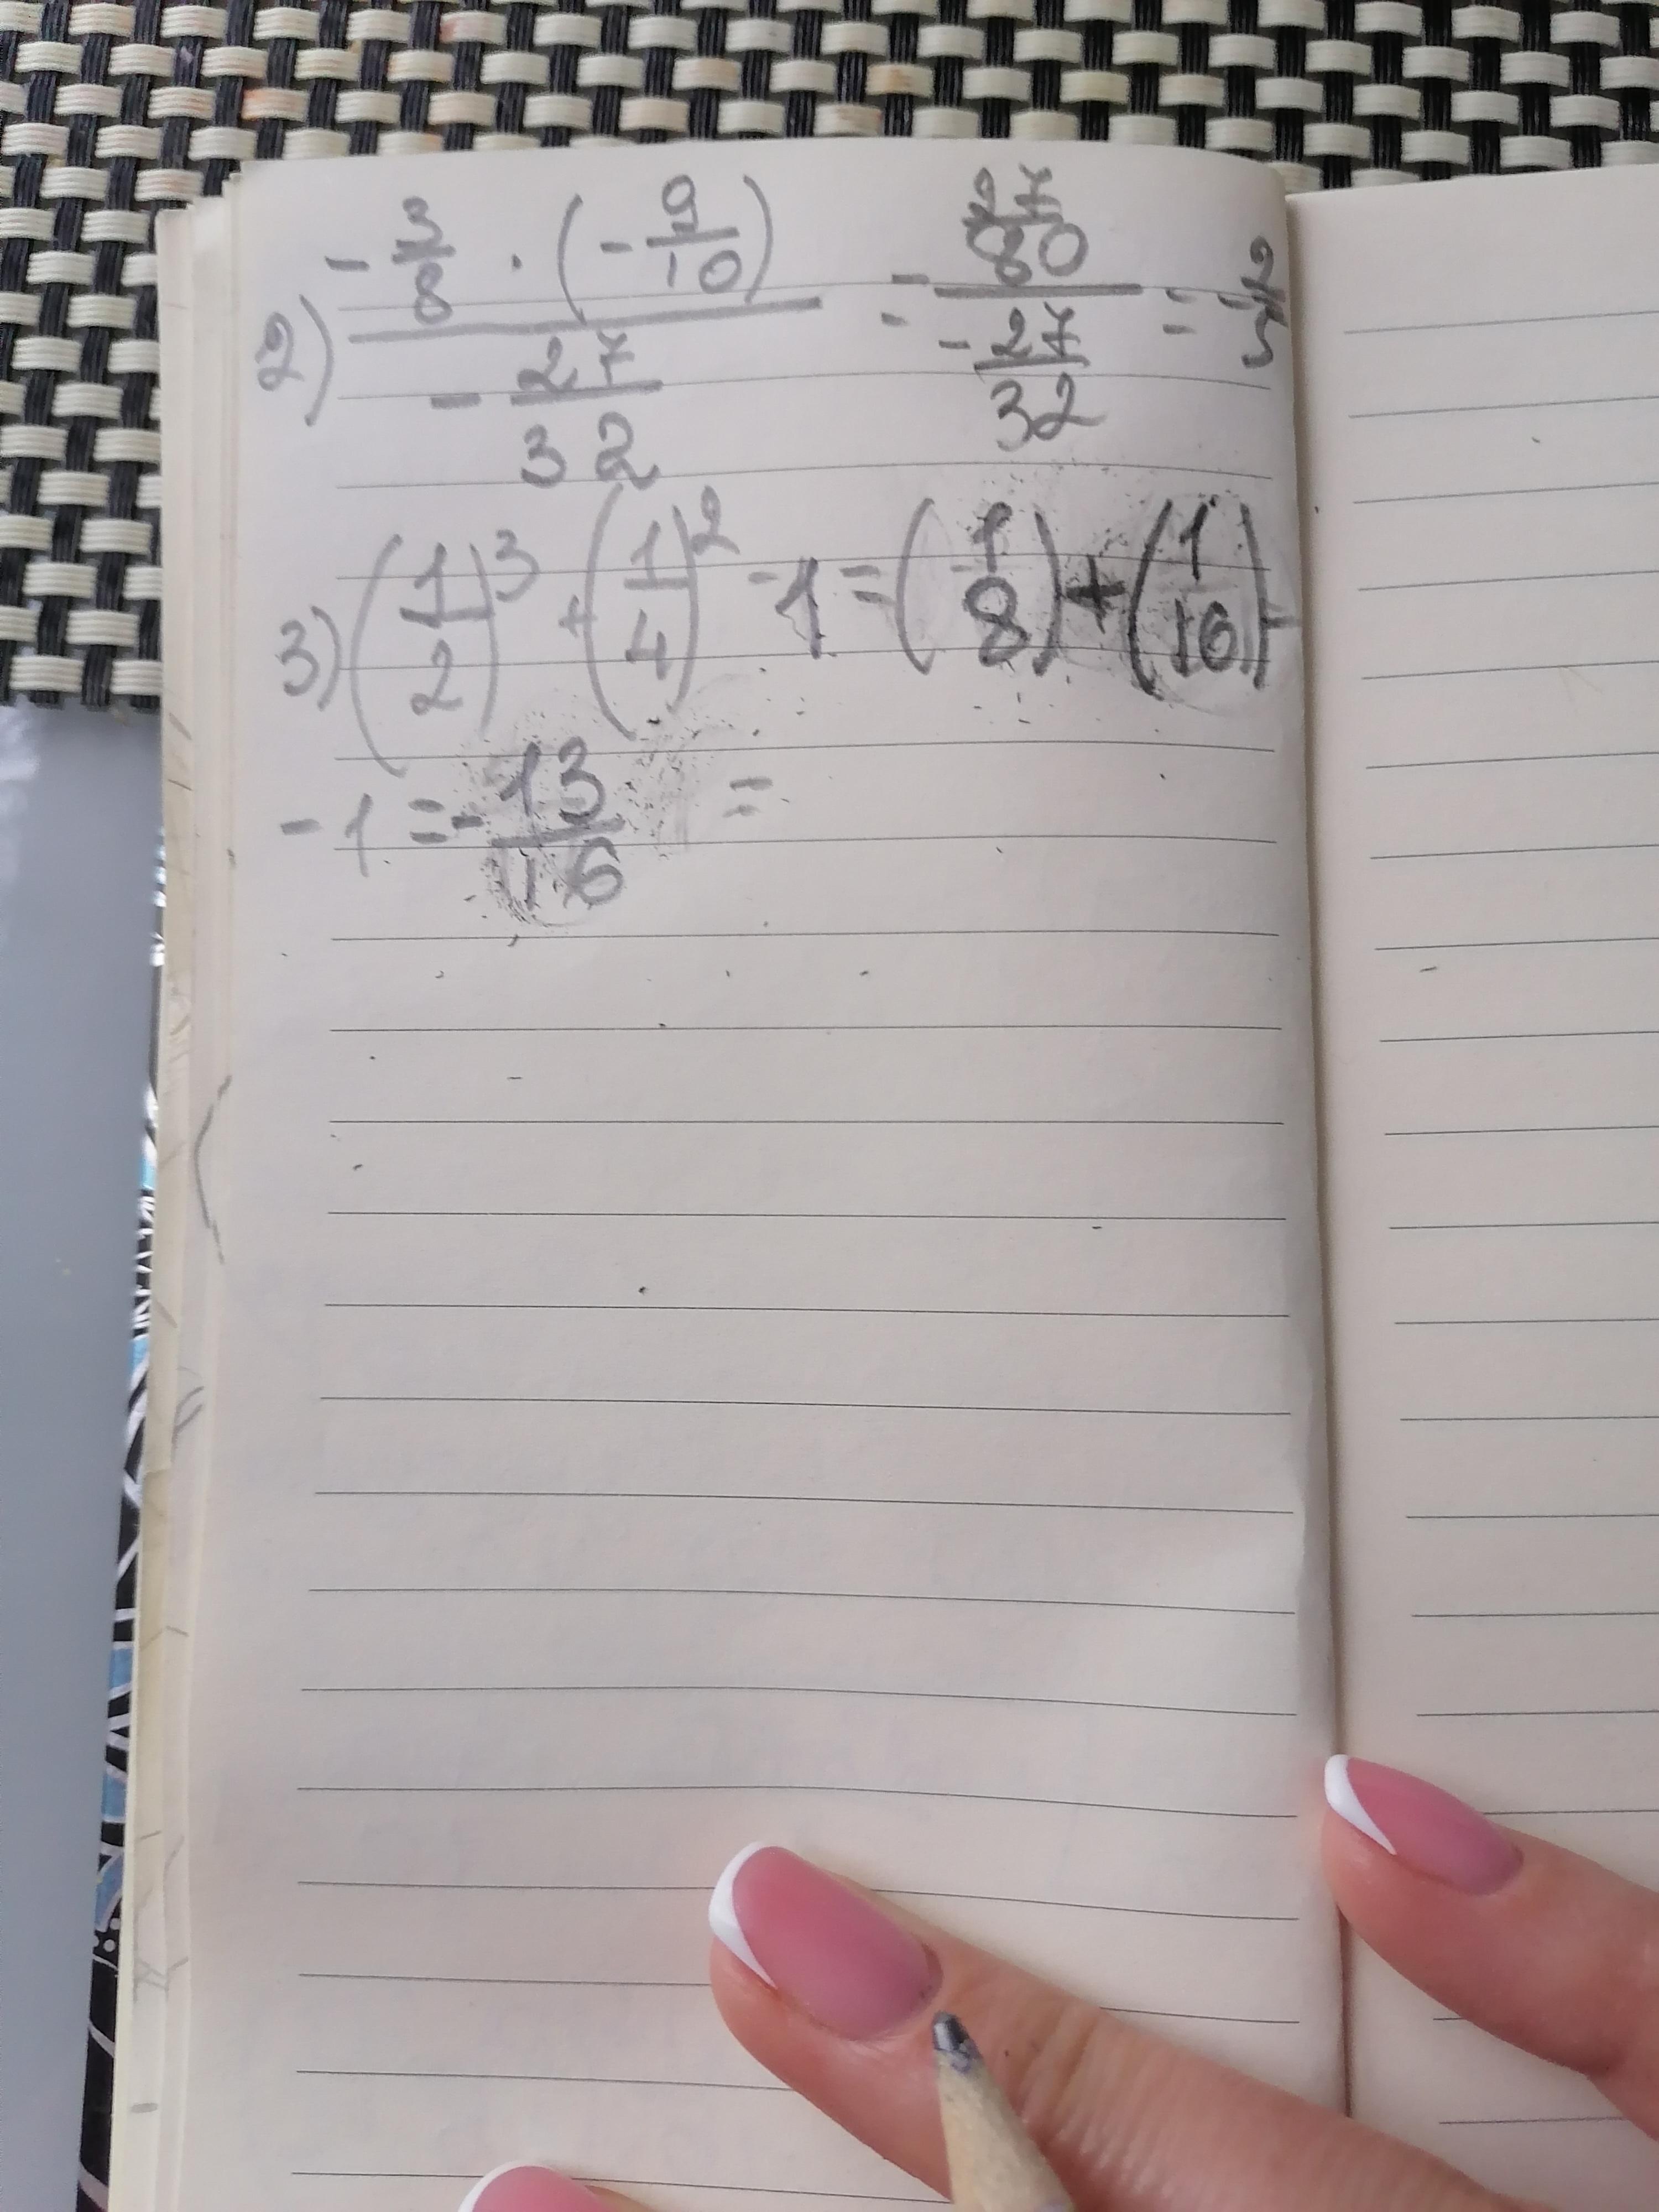 2) (-3/8 · (-9/10)) / (-27/32) = (27/80) / (-27/32) = -2/5
3) (1/2)^3 + (1/4)^2 - 1 = (1/8) + (1/16) -
- 1 = -13/16 =